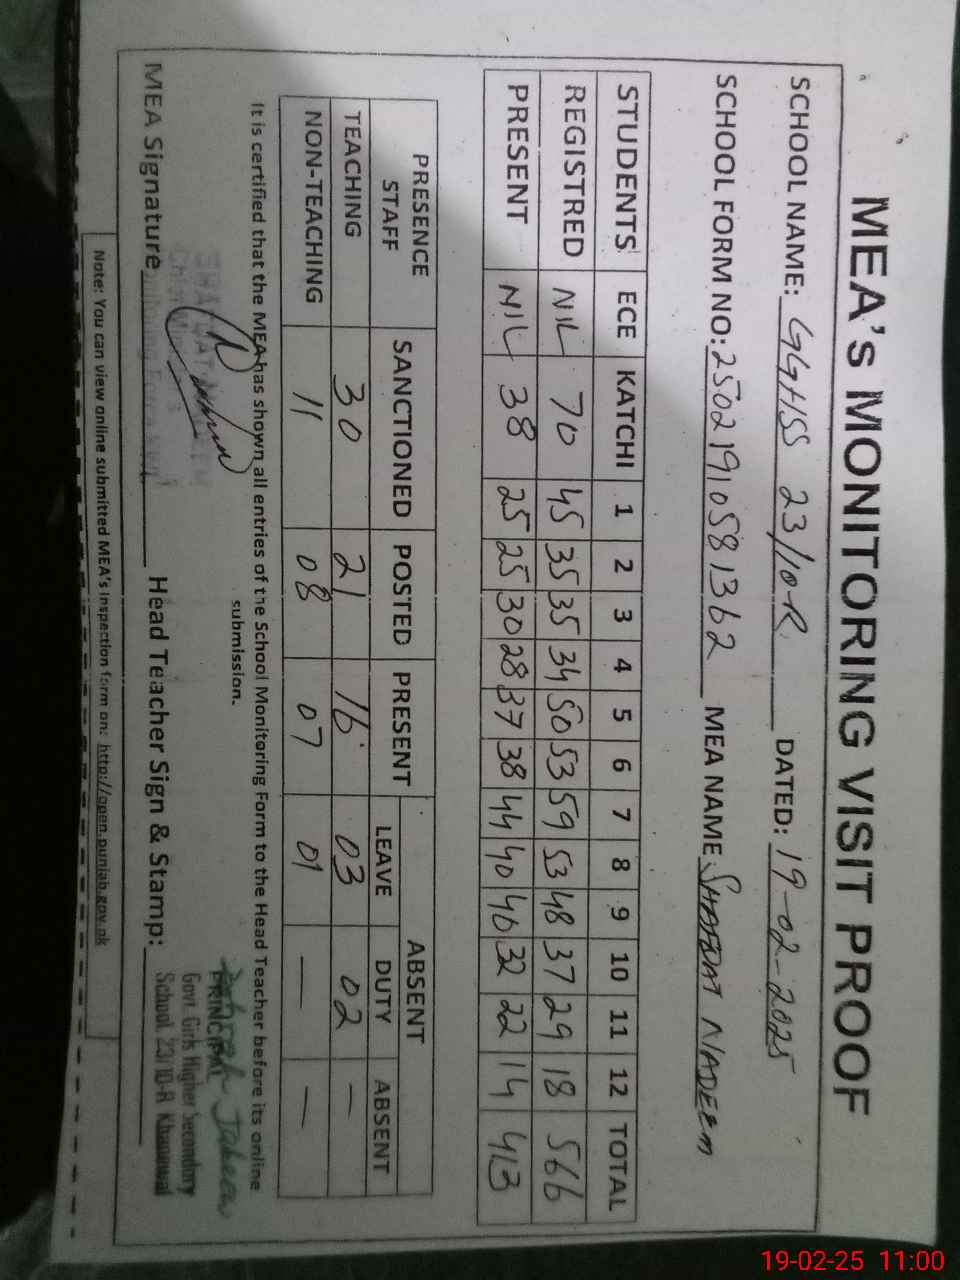 MEA's MONITORING VISIT PROOF
SCHOOL NAME: GGHSS 23/10R DATED: 19-02-2025
SCHOOL FORM NO: 25021910581362 MEA NAME SHAFQAT NADEEM
STUDENTS ECE KATCHI 1 2 3 4 5 6 7 8 9 10 11 12 TOTAL
REGISTRED NIL 70 45 35 35 34 50 53 59 53 48 37 29 18 566
PRESENT NIL 38 25 25 30 28 37 38 44 40 40 32 22 14 413
PRESENCE STAFF SANCTIONED POSTED PRESENT ABSENT
LEAVE DUTY ABSENT
TEACHING 30 21 16 03 02 —
NON-TEACHING 11 08 07 01 — —
It is certified that the MEA has shown all entries of the School Monitoring Form to the Head Teacher before its online
submission.
MEA Signature Head Teacher Sign & Stamp:
PRINCIPAL
Govt. Girls Higher Secondary
School, 23/10-R Khanewal
Note: You can view online submitted MEA's Inspection form on: http://open.punjab.gov.pk
19-02-25 11:00